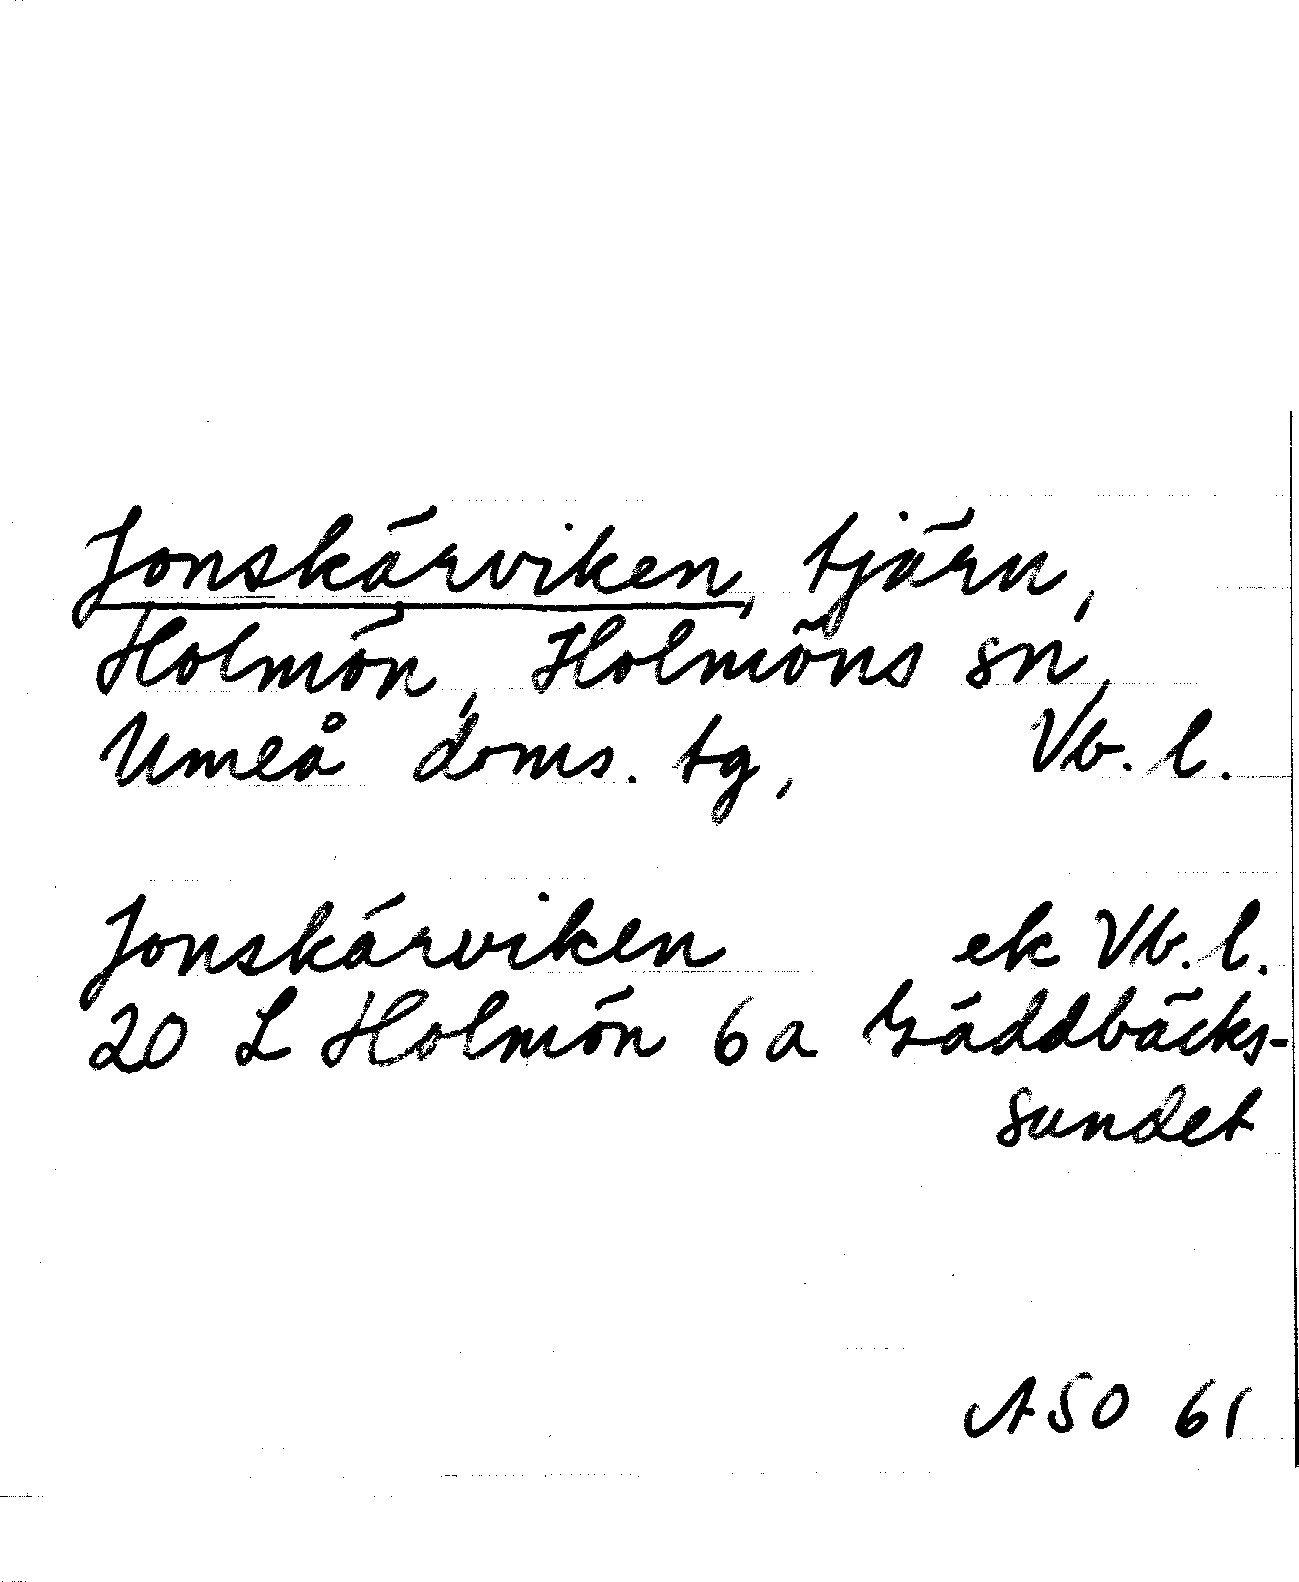 Jonskärviken, tjärn,
Holmön, Holmöns sn,
Umeå doms. tg, Vb. l.
Jonskärviken ek Vb. l.
20 L Holmön 6a Gäddbäcks-
sundet
ASO 61